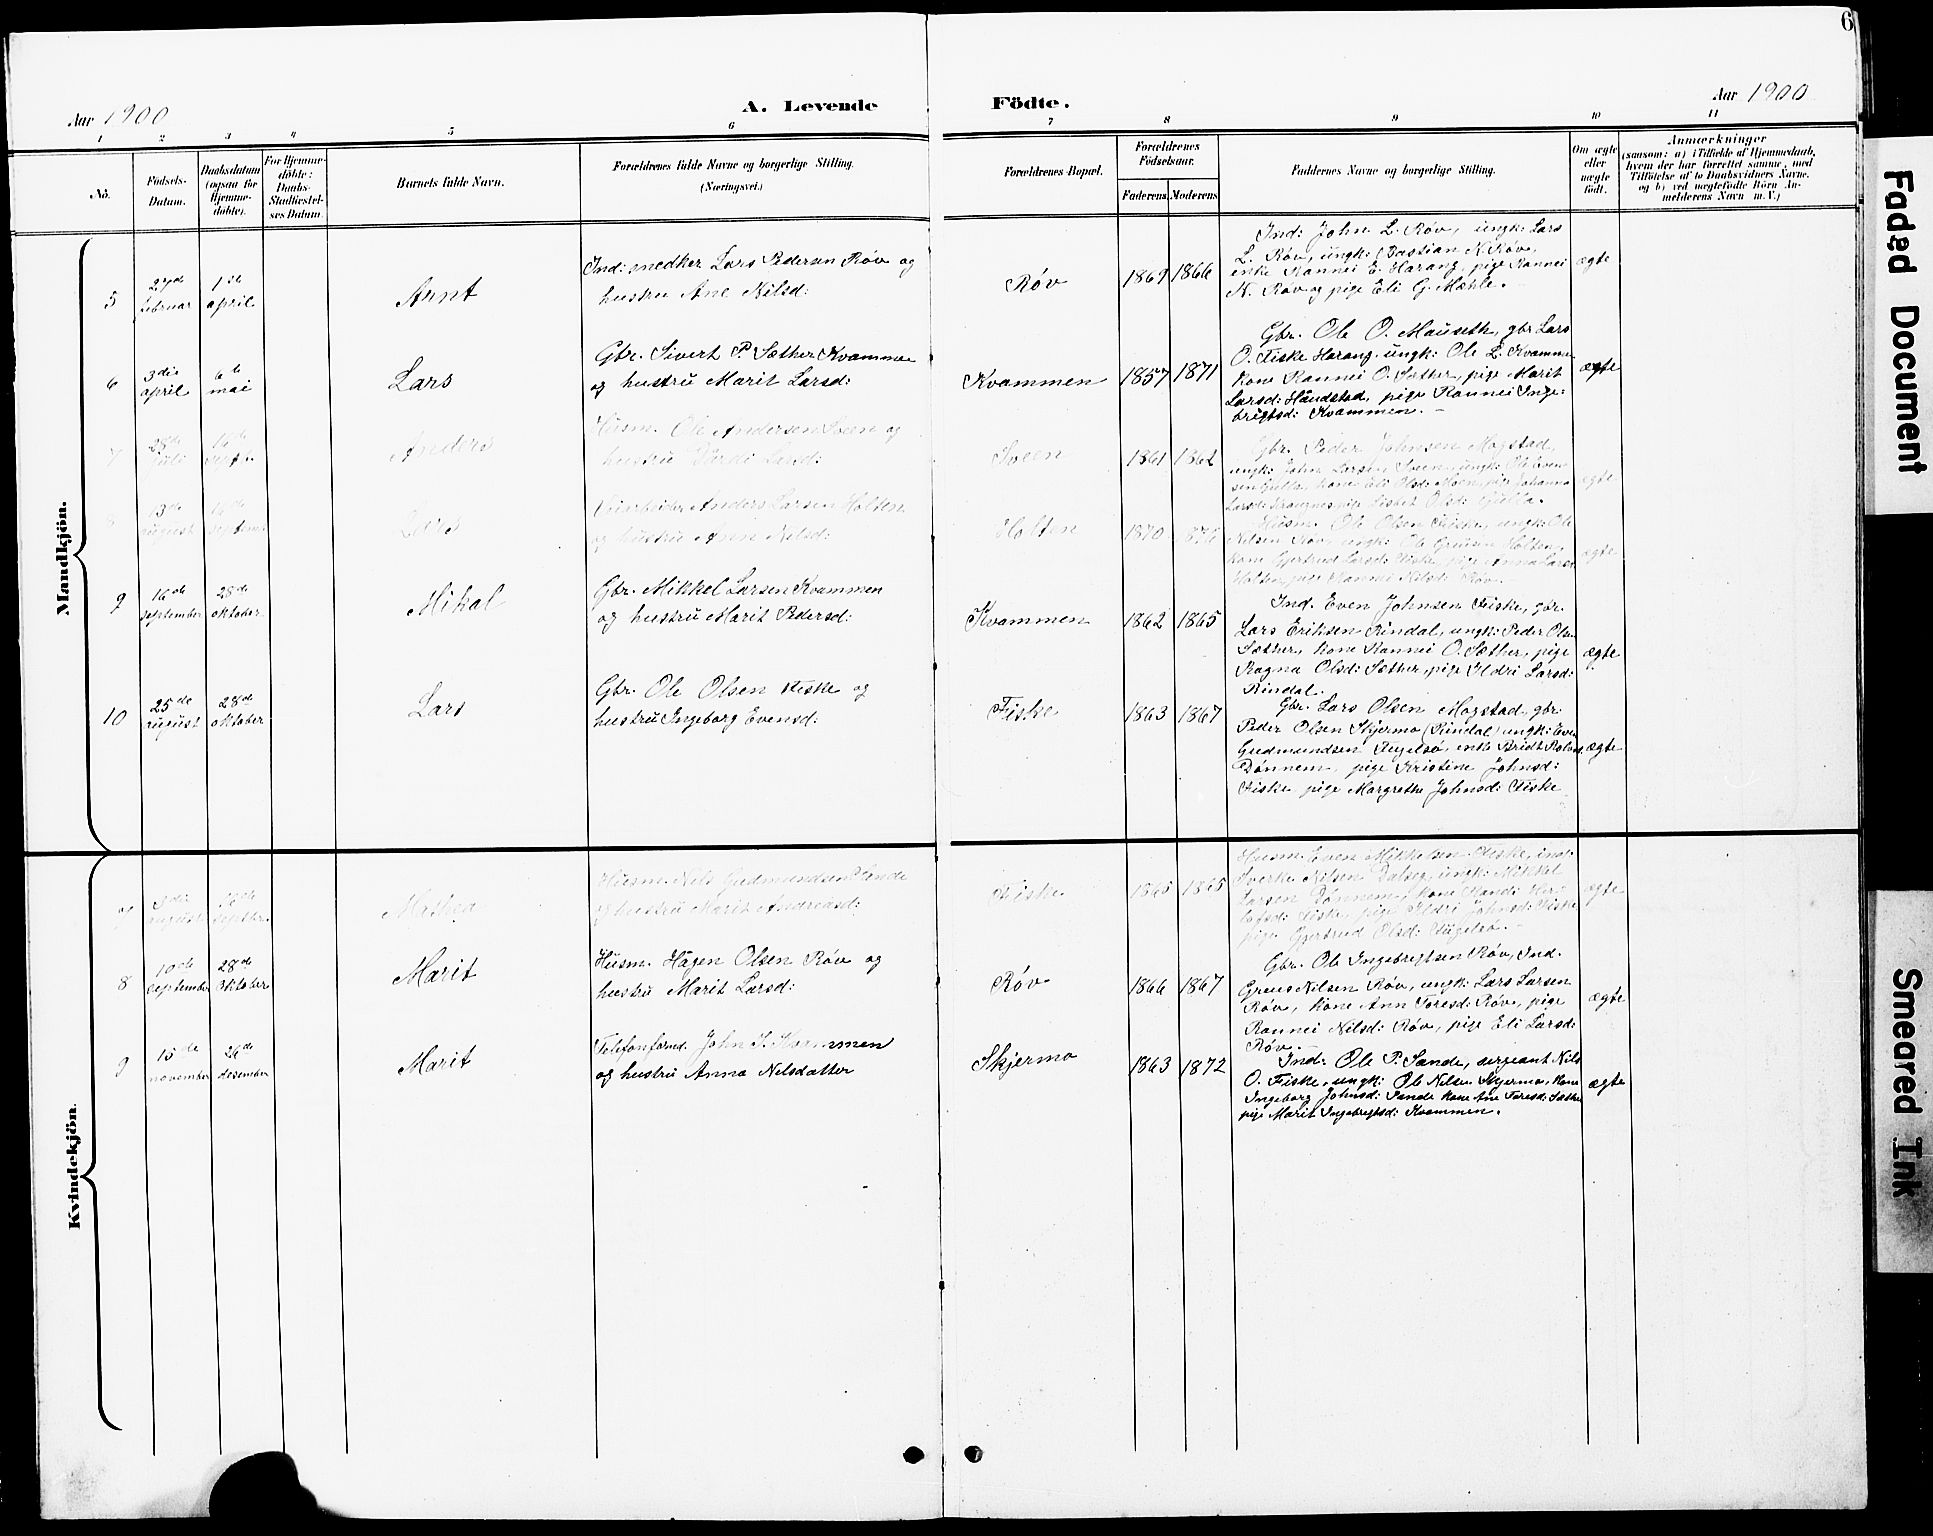 6
Aar 1900
A. Levende Födte.
Aar 1900
1 2 3 4 5 6 7 8 9 10 11
No.
Födsels-
Datum.
Daabsdatum
(ogsaa for
Hjemme-
döbte).
For Hjemme-
döbte:
Daabs-
Stadfæstel-
ses Datum.
Barnets fulde Navn.
Forældrenes fulde Navne og borgerlige Stilling.
(Næringsvei.)
Forældrenes Bopæl.
Forældrenes
Födselsaar.
Faderens. Moderens.
Faddernes Navne og borgerlige Stilling.
Om ægte
eller
uægte
födt.
Anmærkninger
(saasom: a) i Tilfælde af Hjemmedaab,
hvem der har forrettet samme, med
Tilföielse af to Daabsvidners Navne,
og b) ved uægtefödte Börn An-
melderens Navn m. V.)
Mandkjön.
5
februar
1ste
april
Arnt
Ind: snedker Lars Pedersen Røv og
hustru Ane Nilsd:
Røv
1869 1866
Ind: John L. Røv, ungk: Lars
L. Røv, ungk: Bastian N. Røv,
enke Rannei E. Harang, pige Rannei
N. Røv og pige Eli G. Mæhle.
ægte
6
3die
april
6te
mai
Lars
Gbr. Sivert P. Sæther Kvammen
og hustru Marit Larsd:
Kvammen
1857 1871
Gbr. Ole O. Mauseth, gbr Lars
O. Fiske Harang, ungk: Ole L. Kvammen
kone Rannei O. Sæther, pige Marit
Larsd: Haudstad, pige Rannei Inge-
brigtsd: Kvammen.
ægte
7
28de
juli
septb.
Anders
Husm. Ole Andersen Sveen og
hustru Larsd:
Sveen
1861 1862
Gbr. Peder Johnsen Mogstad,
ungk: John Larsen Sveen, ungk: Ole Even-
sen Gulla, kone Eli Olsd: Moen, pige Johanna
Larsd: pige Lisbet Olsd: Gulla.
ægte
8
13de
august
septemb
Lars
Anders Larsen Holten
og hustru Anne Nilsd:
Holten
1870
Husm. Ole Olsen Fiske, ungk: Ole
Nilsen Røv, ungk: Ole Holten,
kone Gjertrud Larsd: Fiske, pige Anna Larsd
Holten, pige Rannei Nilsd: Røv.
ægte
9
16de
september
28de
oktober
Mikal
Gbr. Mikkel Larsen Kvammen
og hustru Marit Pedersd:
Kvammen
1862 1865
Ind. Even Johnsen Fiske, gbr.
Lars Eriksen Rindal, ungk: Peder Olsen
Sæther, kone Rannei O. Sæther, pige
Ragna Olsd: Sæther, pige Ildri Larsd:
Rindal.
ægte
10
25de
august
28de
oktober
Lars
Gbr. Ole Olsen Fiske og
hustru Ingeborg Evensd:
Fiske
1863 1867
Gbr. Lars Olsen Mogstad, gbr.
Peder Olsen Skjermo (Rindal) ungk: Even
Gudmundsen enke Bridt
Dønnem, pige Kristine Johnsd:
Fiske, pige Margrethe Johnsd: Fiske
ægte
Kvindekjön.
7
august
septbr.
Husm. Nils Gudmundsen Sande
og hustru Marit Andreasd:
Fiske
1865 1865
Husm. Even Mikkelsen Fiske, ind:
Sverke Nilsen Dalseg, ungk: Mikkel
Larsen Dønnem, kone Randi Her-
lofsd: Fiske, pige Ildri Johnsd: Fiske
pige Gjertrud Olsd:
ægte
8
10de
september
28de
oktober
Marit
Husm. Hagen Olsen Røv og
hustru Marit Larsd:
Røv
1866 1867
Gbr. Ole Ingebrigtsen Røv, Ind.
Nilsen Røv, ungk: Lars Larsen
Røv, kone Ann Toresd: Røv, pige
Rannei Nilsd: Røv, pige Eli Larsd:
Røv.
ægte
9
15de
november
26de
desember
Marit
Telefonformd. John S. Kvammen
og hustru Anna Nilsdatter
Skjermo
1863 1872
Ind: Ole P. Sande, sergeant Nils
O. Fiske, ungk: Ole Nilsen Skjermo, kone
Ingeborg Johnsd: Sande kone Ane Toresd: Sæther
pige Marit Ingebrigtsd: Kvammen.
ægte
Faded Document
Smeared Ink